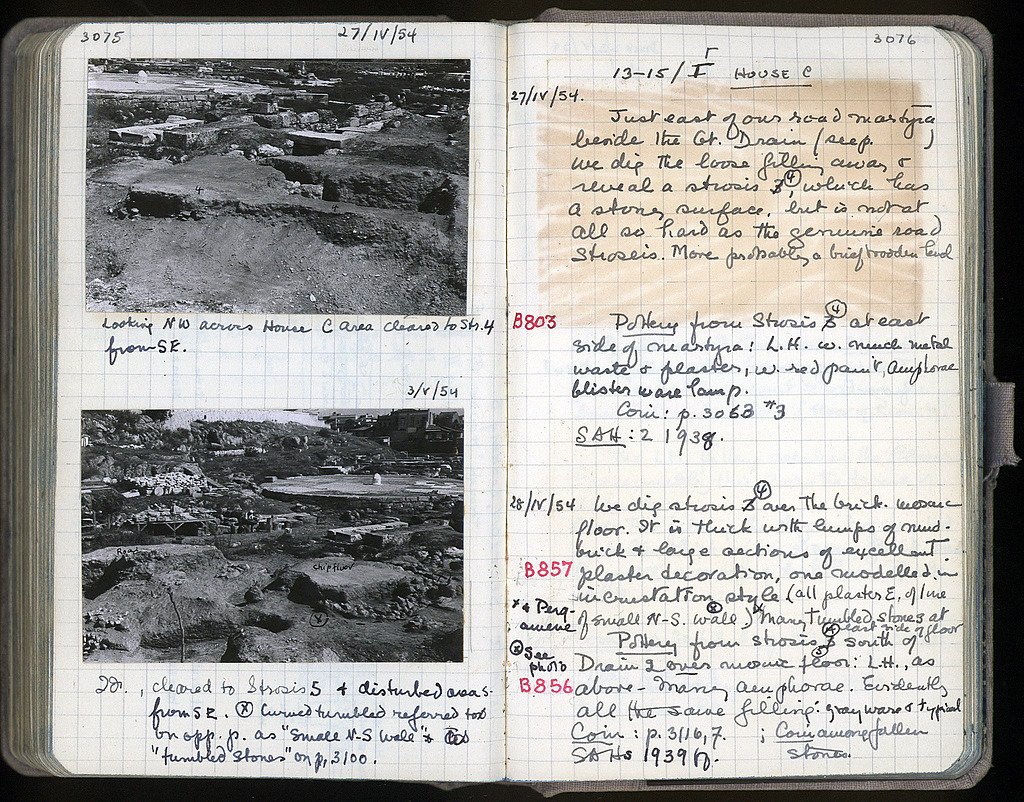 3075
27/IV/54
4
Looking NW across House C area cleared to Str. 4
from SE.
3/V/54
Road
chip floor
Id., cleared to Strosis 5 & disturbed areas
from SE. Ⓧ Curved tumbled referred to
on opp. p. as "Small N-S Wall" &
"tumbled stones" on p. 3100.
3076
13-15/Γ HOUSE C
27/IV/54.
Just east of our road martyra
beside the Gt. Drain (see p. )
we dig the loose filling away &
reveal a strosis ④, which has
a stoney surface, but is not at
all so hard as the genuine road
stroseis. More probably a brief trodden level
B803
Pottery from Strosis ④ at east
side of martyra: L.H. w. much metal
waste & plaster, w. red paint, amphorae
blister ware lamp.
Coin: p. 3063 #3
SAH: 2 1938.
28/IV/54
We dig strosis ④ over the brick mosaic
floor. It is thick with lumps of mud-
brick & large sections of excellent
B857
plaster decoration, one modelled in
incrustation style (all plaster E. of line
x & Perg-
amene
of small N-S. wall Ⓧ) Many tumbled stones at
east side of floor
Pottery from Strosis ④ south of
Ⓧ See
photo
Drain 2 over mosaic floor: L.H., as
B856
above - Many amphorae. Evidently
all the same filling: gray ware & typical
Coin: p. 3116, 7. ; Coin among fallen
stones.
SAHs 1939